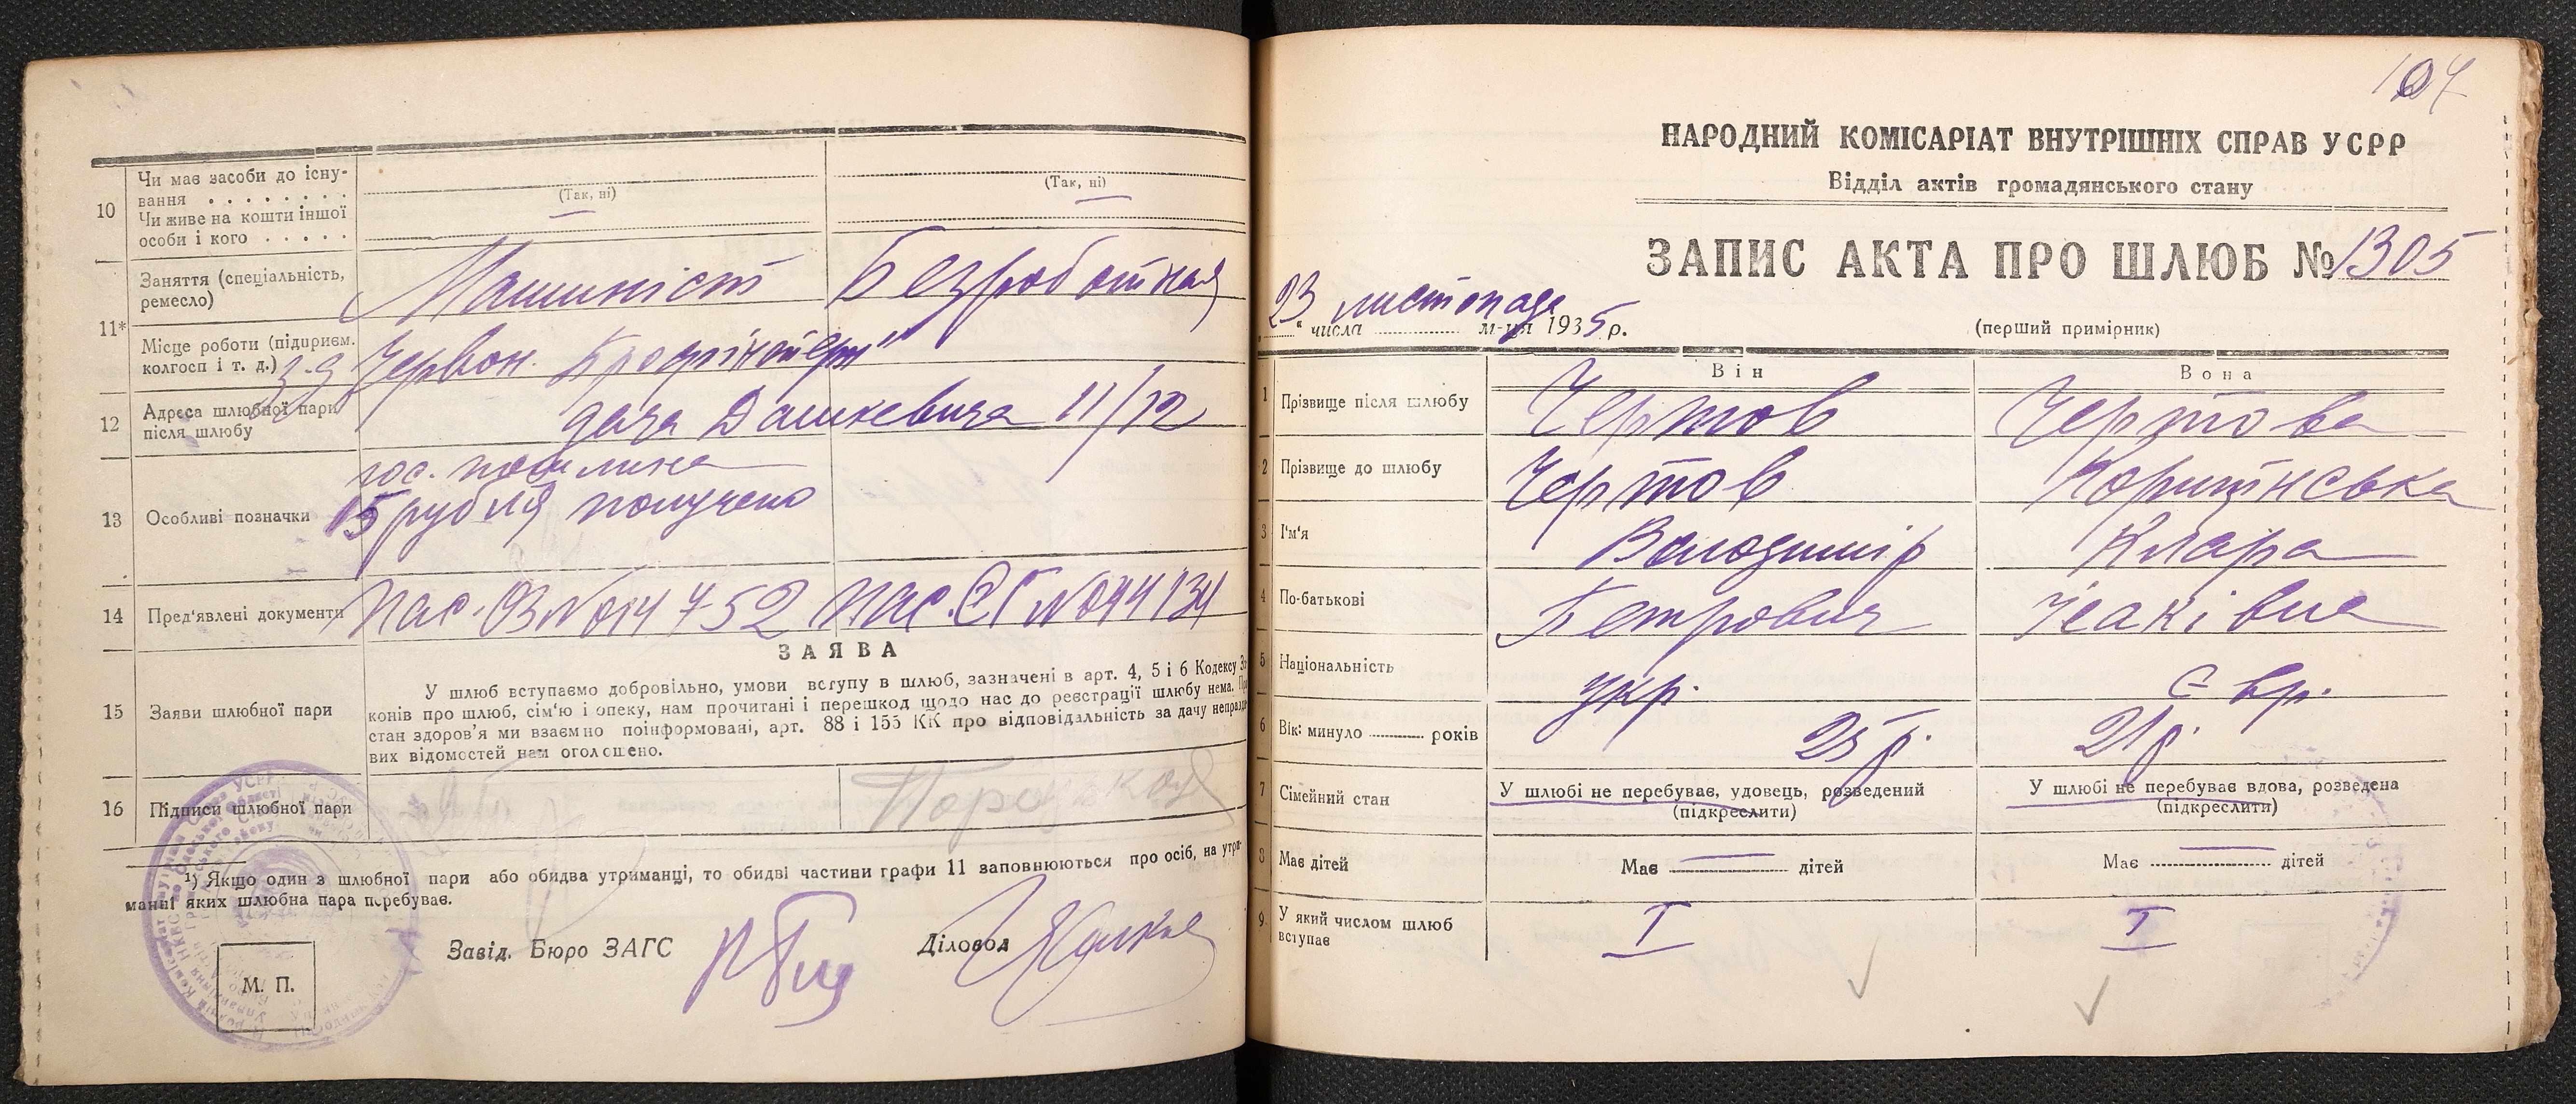 10
Чи має засоби до існу-
вання . . . . . . . .
Чи живе на кошти іншої
особи і кого . . . . .
(Так, ні)
(Так, ні)
11*
Заняття (спеціальність,
ремесло)
Машиніст
Безработная
Місце роботи (підприєм.
колгосп і т. д.)
з-д Червон. Профінтерн"
12
Адреса шлюбної пари
після шлюбу
дача Дашкевича 11/12
13
Особливі позначки
гос. пошлина
15 рубля получено
14
Пред'явлені документи
пас. ОЗ № 014752
пас. № 044134
ЗАЯВА
15
Заяви шлюбної пари
У шлюб вступаємо добровільно, умови вступу в шлюб, зазначені в арт. 4, 5 і 6 Кодексу За
конів про шлюб, сім'ю і опеку, нам прочитані і перешкод щодо нас до реєстрації шлюбу нема. Про
стан здоров'я ми взаємно поінформовані, арт. 88 і 155 КК про відповідальність за дачу неправди
вих відомостей нам оголошено.
16
Підписи шлюбної пари
¹) Якщо один з шлюбної пари або обидва утриманці, то обидві частини графи 11 заповнюються про осіб, на утри-
манні яких шлюбна пара перебуває.
Завід. Бюро ЗАГС
Діловод
М. П.
104
НАРОДНИЙ КОМІСАРІАТ ВНУТРІШНІХ СПРАВ УСРР
Відділ актів громадянського стану
ЗАПИС АКТА ПРО ШЛЮБ № 1305
„23" числа листопада м-ця 1935 р.
(перший примірник)
Він
Вона
1 Прізвище після шлюбу
Чертов
Чертова
2 Прізвище до шлюбу
Чертов
3 І'м'я
Володимір
Клара
4 По-батькові
Петрович
Ісаківна
5 Національність
укр.
євр.
6 Вік: минуло ........ років
25 р.
21 р.
7 Сімейний стан
У шлюбі не перебуває, удовець, розведений
(підкреслити)
У шлюбі не перебуває вдова, розведена
(підкреслити)
8 Має дітей
Має — дітей
Має — дітей
9 У який числом шлюб
вступає
I
I